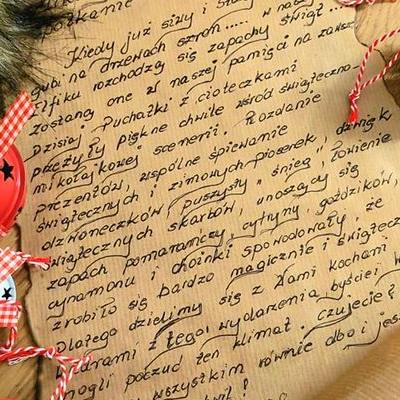 potkanie
Kiedy już siwy i
gubi na drzewach szron..... w na
Elfiku rozchodzą się zapachy świąt ...
zostaną one w naszej pamięci na zawsze
Dzisiaj Puchatki z cioteczkami
przeżyły piękne chwile wśród świąteczno-
mikołajkowej scenerii. Rozdanie
prezentów, wspólne śpiewanie
świątecznych i zimowych piosenek, dźwięk
dzwoneczków, puszysty „śnieg", łowienie
świątecznych skarbów, unoszący się
zapach pomarańczy, cytryny, goździków,
cynamonu i choinki spowodowały, że
zrobiło się bardzo magicznie i świątecz
Dlatego dzielimy się z Wami kochani
kadrami z tego wydarzenia byście i w
mogli poczuć ten klimat. Czujecie?
wszystkim równie dboi jes